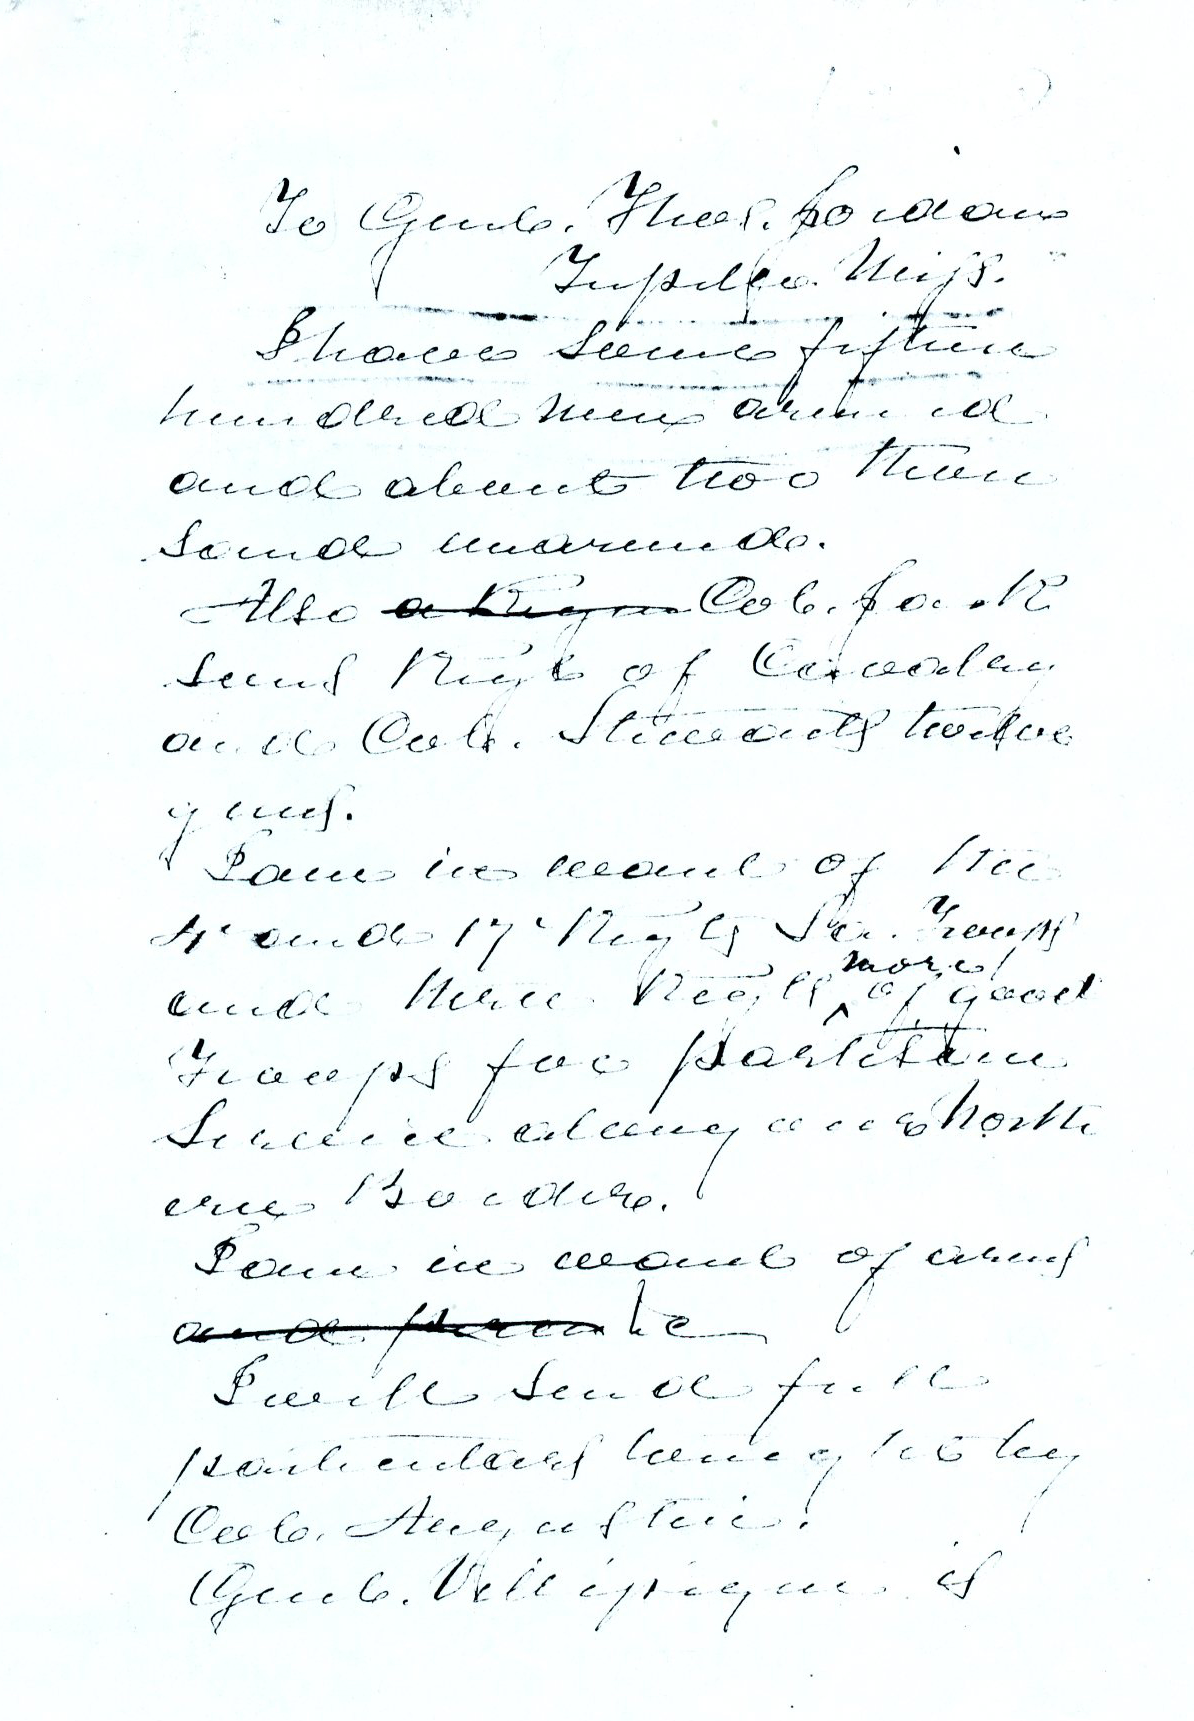 To Genl. Thos. Jordan
Tupelo. Miss.
I have some fifteen
hundred men armed
and about two thou
sand unarmed.
Also a Regm Col. Jack
sons Regt of Cavalry
and Col. Stewarts twelve
guns.
I am in want of the
4 and 17 Regts La. Troops
and three Regts more of good
Troops for partisan
Service along our North
ern Border.
I am in want of arms
and
I will send full
particulars tonight by
Col. Augustin.
Genl. Villipigue is